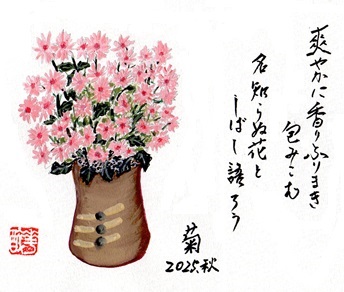 爽やかに香りふりまき
包みこむ
名知らぬ花と
しばし語ろう
菊
2025.秋